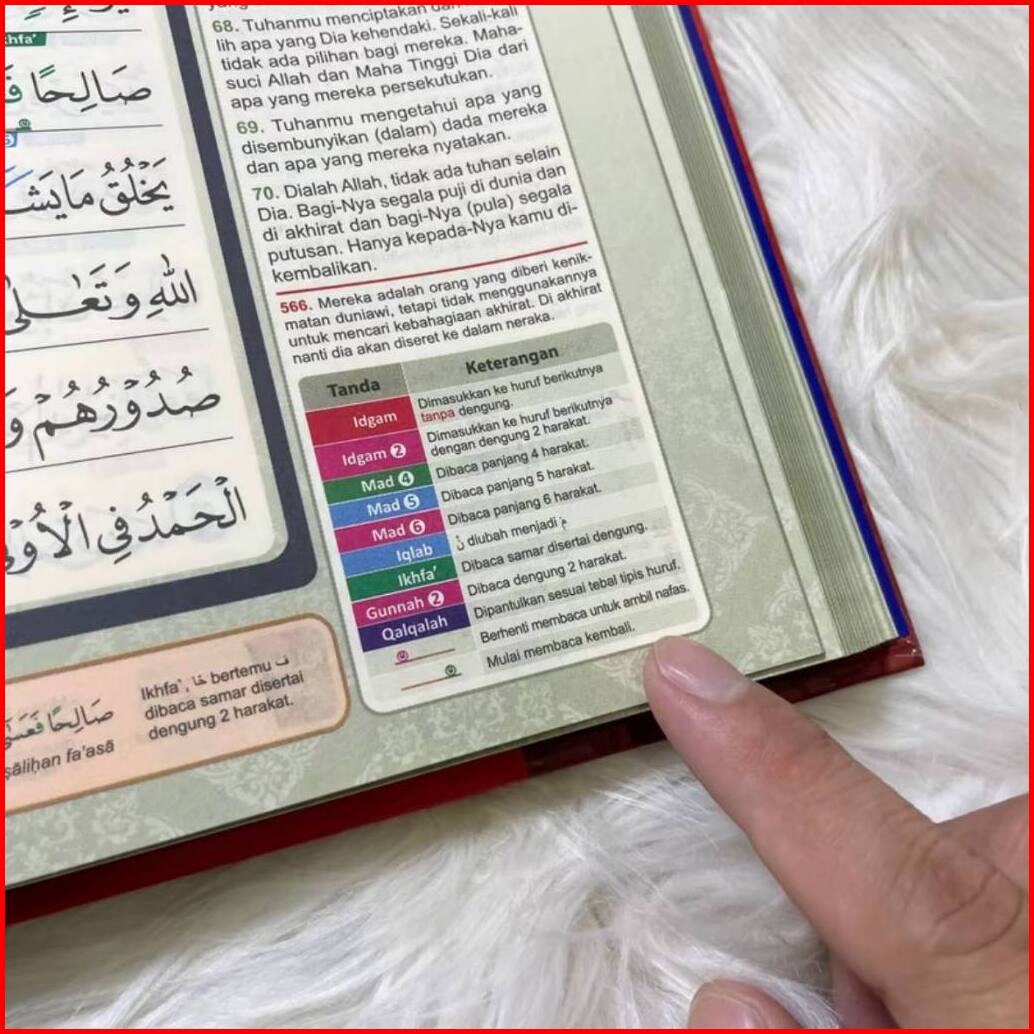 khfa'
صَالِحًا
يَخْلُقُ مَا يَشَ
اللّٰهِ وَتَعٰلٰى
صُدُوْرُهُمْ وَ
الْحَمْدُ فِى الْاُوْ
68. Tuhanmu menciptakan dan
lih apa yang Dia kehendaki. Sekali-kali
tidak ada pilihan bagi mereka. Maha-
suci Allah dan Maha Tinggi Dia dari
apa yang mereka persekutukan.
69. Tuhanmu mengetahui apa yang
disembunyikan (dalam) dada mereka
dan apa yang mereka nyatakan.
70. Dialah Allah, tidak ada tuhan selain
Dia. Bagi-Nya segala puji di dunia dan
di akhirat dan bagi-Nya (pula) segala
putusan. Hanya kepada-Nya kamu di-
kembalikan.
566. Mereka adalah orang yang diberi kenik-
matan duniawi, tetapi tidak menggunakannya
untuk mencari kebahagiaan akhirat. Di akhirat
nanti dia akan diseret ke dalam neraka.
Tanda Keterangan
Idgam Dimasukkan ke huruf berikutnya
tanpa dengung.
Idgam 2 Dimasukkan ke huruf berikutnya
dengan dengung 2 harakat.
Mad 4 Dibaca panjang 4 harakat.
Mad 5 Dibaca panjang 5 harakat.
Mad 6 Dibaca panjang 6 harakat.
Iqlab نْ diubah menjadi م
Ikhfa' Dibaca samar disertai dengung.
Gunnah 2 Dibaca dengung 2 harakat.
Qalqalah Dipantulkan sesuai tebal tipis huruf.
Berhenti membaca untuk ambil nafas.
Mulai membaca kembali.
صَالِحًا فَعَسٰٓى
ṣāliḥan fa'asā
Ikhfa', حًا bertemu ف
dibaca samar disertai
dengung 2 harakat.